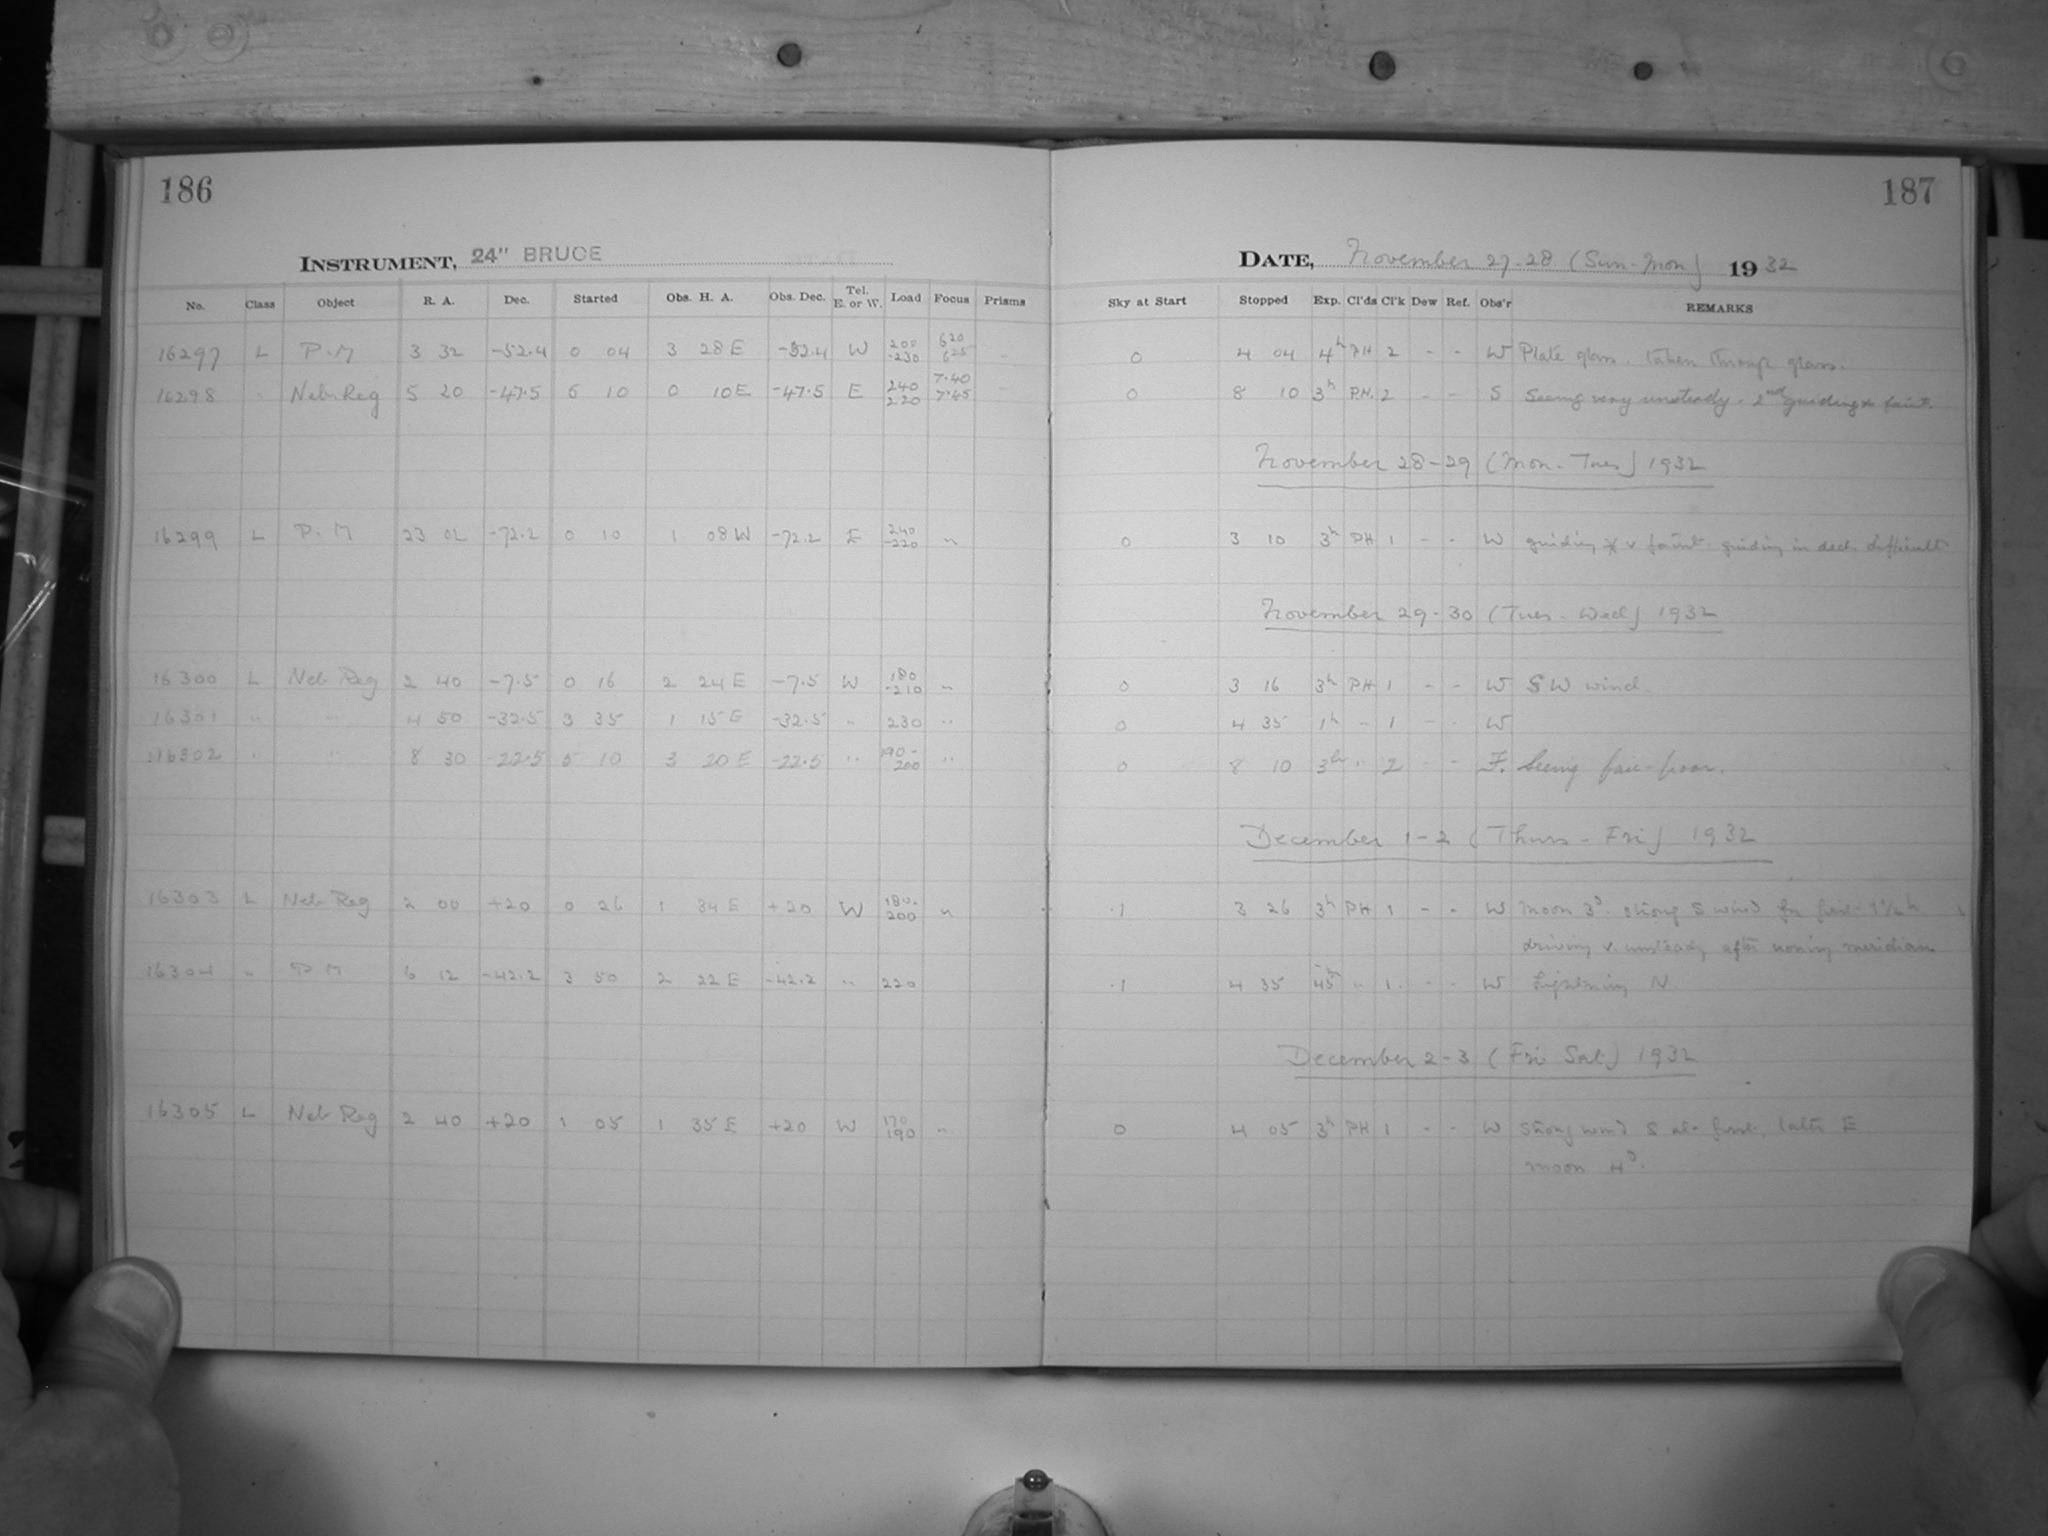 186
INSTRUMENT, 24" BRUCE
No. Class Object R. A. Dec. Started Obs. H. A. Obs. Dec. Tel. E. or W. Load Focus Prisms
16297 L P.M 3 32 -52.4 0 04 3 28 E -52.4 W 200 -230 620 625
16298 " Neb. Reg 5 20 -47.5 5 10 0 10 E -47.5 E 240 220 7.40 7.45
16299 L P.M 23 02 -72.2 0 10 1 08 W -72.2 E 240 -220 "
16300 L Neb Reg 2 40 -7.5 0 16 2 24 E -7.5 W 180 -210 "
16301 " " 4 50 -32.5 3 35 1 15 E -32.5 " 230 "
16302 " " 8 30 -22.5 5 10 3 20 E -22.5 " 190- 200 "
16303 L Neb Reg 2 00 +20 0 26 1 34 E +20 W 180- 200 "
16304 " P M 6 12 -42.2 3 50 2 22 E -42.2 " 220
16305 L Neb Reg 2 40 +20 1 05 1 35 E +20 W 170 190 "
187
DATE, November 27-28 (Sun-Mon) 1932
Sky at Start Stopped Exp. Cl'ds Cl'k Dew Ref. Obs'r REMARKS
0 4 04 4h PH 2 - - W Plate glass. taken through glass.
0 8 10 3h P.H. 2 - - S Seeing very unsteady - 2nd guiding * faint.
November 28-29 (Mon-Tues) 1932
0 3 10 3h PH 1 - - W guiding * v faint. guiding in dec. difficult
November 29-30 (Tues-Wed) 1932
0 3 16 3h PH 1 - - W SW wind.
0 4 35 1h " 1 - - W
0 8 10 3h " 2 - - F. Seeing fair-poor.
December 1-2 (Thurs-Fri) 1932
.1 3 26 3h PH 1 - - W Moon 3d. strong S wind for first
driving v. unsteady after meridian
.1 4 35 45 " 1 - - W Lightning N.
December 2-3 (Fri Sat) 1932
0 4 05 3h PH 1 - - W Strong wind S at first, later E
moon 4d.